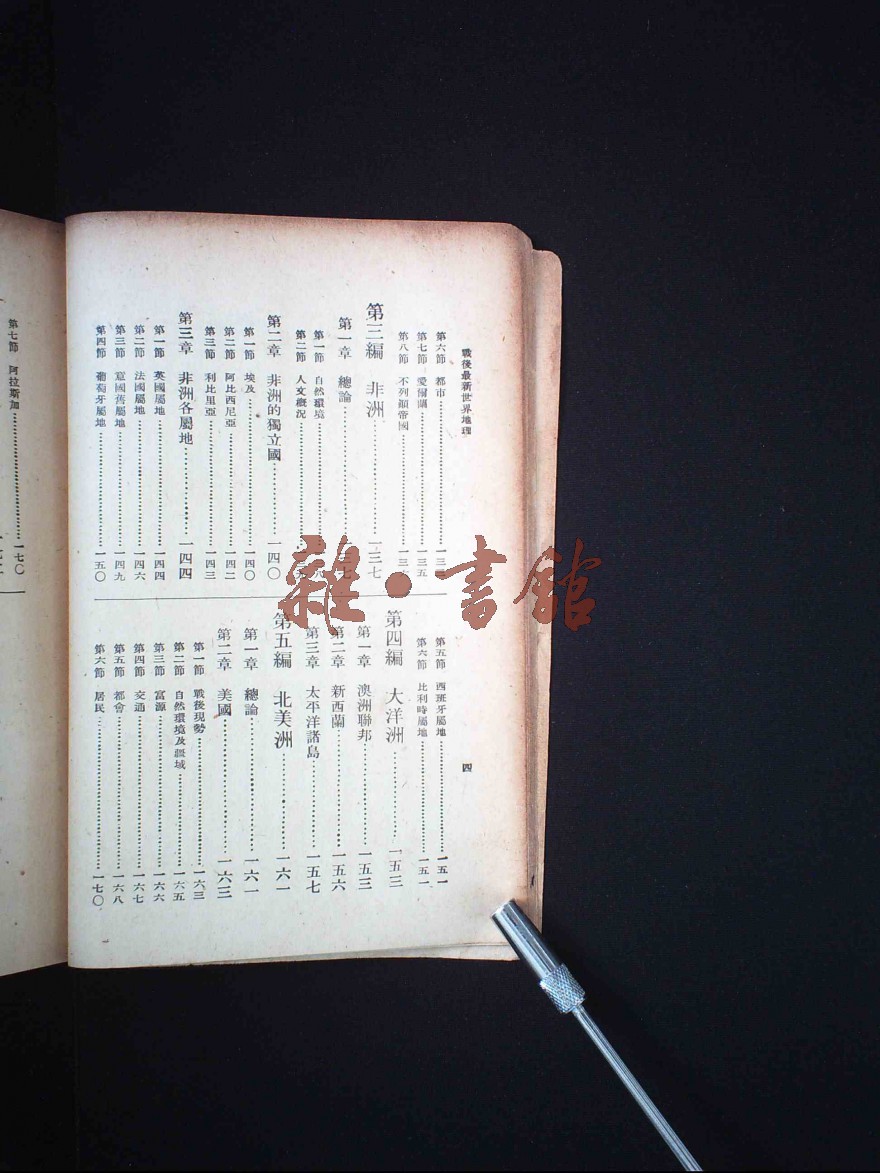 戰後最新世界地理
四
第六節 都市
第七節 愛爾蘭……一三五
第八節 不列顚帝國
第三編 非洲……一三七
第一章 總論
第一節 自然環境
第二節 人文概況
第二章 非洲的獨立國……一四〇
第一節 埃及……一四〇
第二節 阿比西尼亞……一四二
第三節 利比里亞……一四三
第三章 非洲各屬地……一四四
第一節 英國屬地……一四四
第二節 法國屬地……一四六
第三節 意國舊屬地……一四九
第四節 葡萄牙屬地……一五〇
第五節 西班牙屬地……一五一
第六節 比利時屬地……一五一
第四編 大洋洲……一五三
第一章 澳洲聯邦……一五三
第二章 新西蘭……一五六
第三章 太平洋諸島……一五七
第五編 北美洲……一六一
第一章 總論……一六一
第二章 美國……一六三
第一節 戰後現勢……一六三
第二節 自然環境及疆域……一六五
第三節 富源……一六六
第四節 交通……一六七
第五節 都會……一六八
第六節 居民……一七〇
第七節 阿拉斯加……一七〇
雜·書館